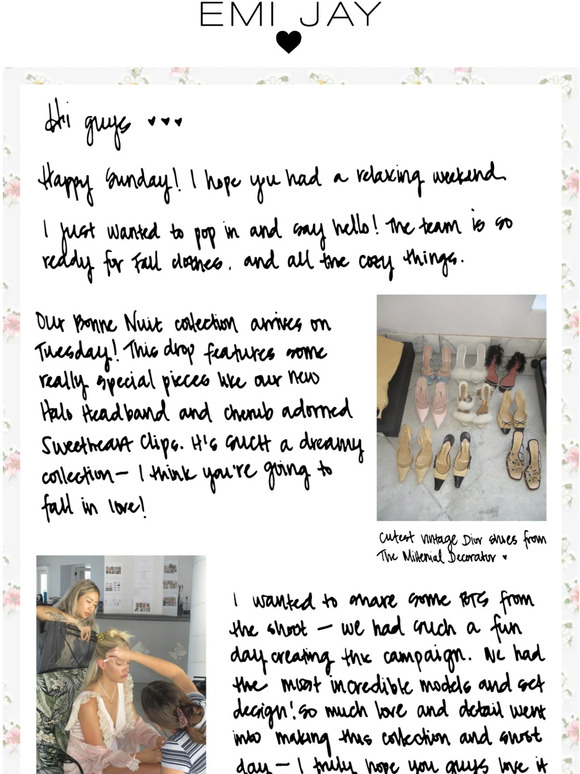 EMI JAY
Hi guys ♥♥♥
Happy Sunday! I hope you had a relaxing weekend.
I just wanted to pop in and say hello! The team is so
ready for Fall clothes, and all the cozy things.
Our Bonne Nuit collection arrives on
Tuesday! This drop features some
really special pieces like our new
Halo Headband and cherub adorned
Sweetheart Clips. It's SUCH a dreamy
collection— I think you're going to
fall in love!
Cutest vintage Dior shoes from
The Millenial Decorator ♥
I wanted to share some BTS from
the shoot — we had such a fun
day creating this campaign. We had
the most incredible models and set
design! so much love and detail went
into making this collection and shoot
day — I truly hope you guys love it